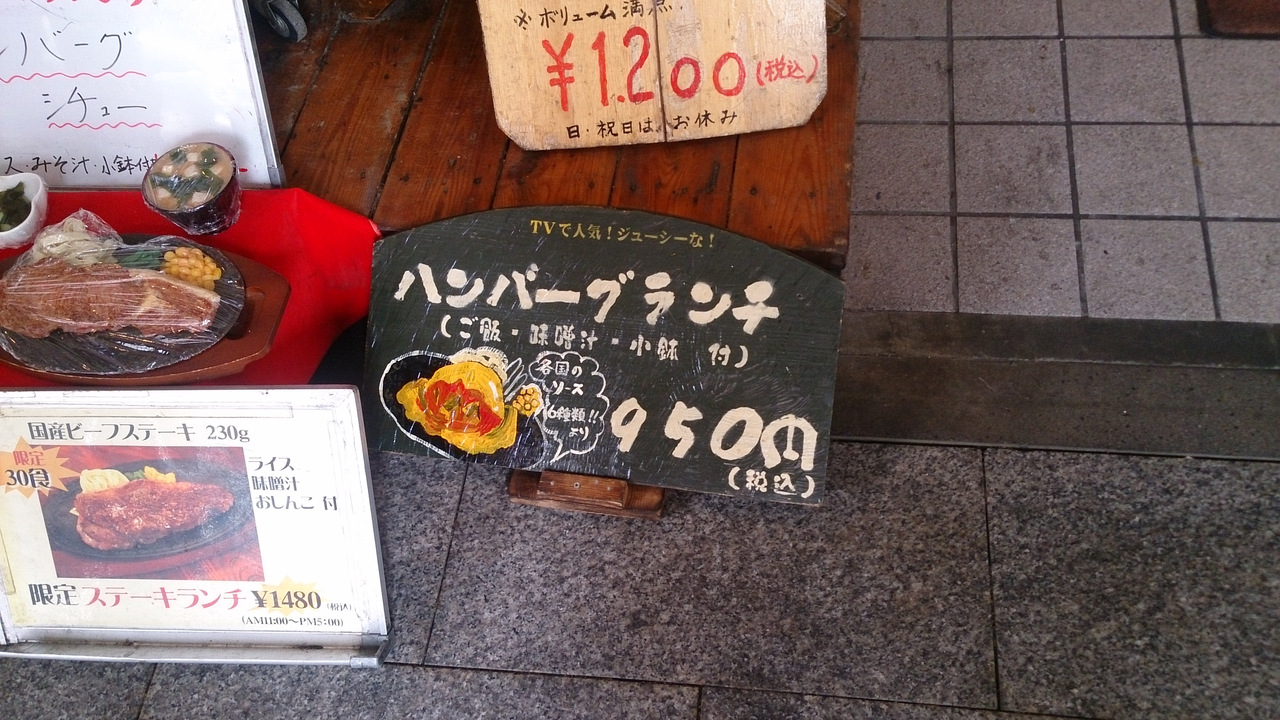 ンバーグ
シチュー
ス・みそ汁・小鉢付
※ボリューム満点
¥1.200(税込)
日・祝日は、お休み
TVで人気!ジューシーな!
ハンバーグランチ
(ご飯・味噌汁・小鉢 付)
各国の
ソース
6種類!!
より
950円
(税込)
国産ビーフステーキ 230g
限定
30食
ライス
味噌汁
おしんこ 付
限定ステーキランチ¥1480(税込)
(AM11:00〜PM5:00)